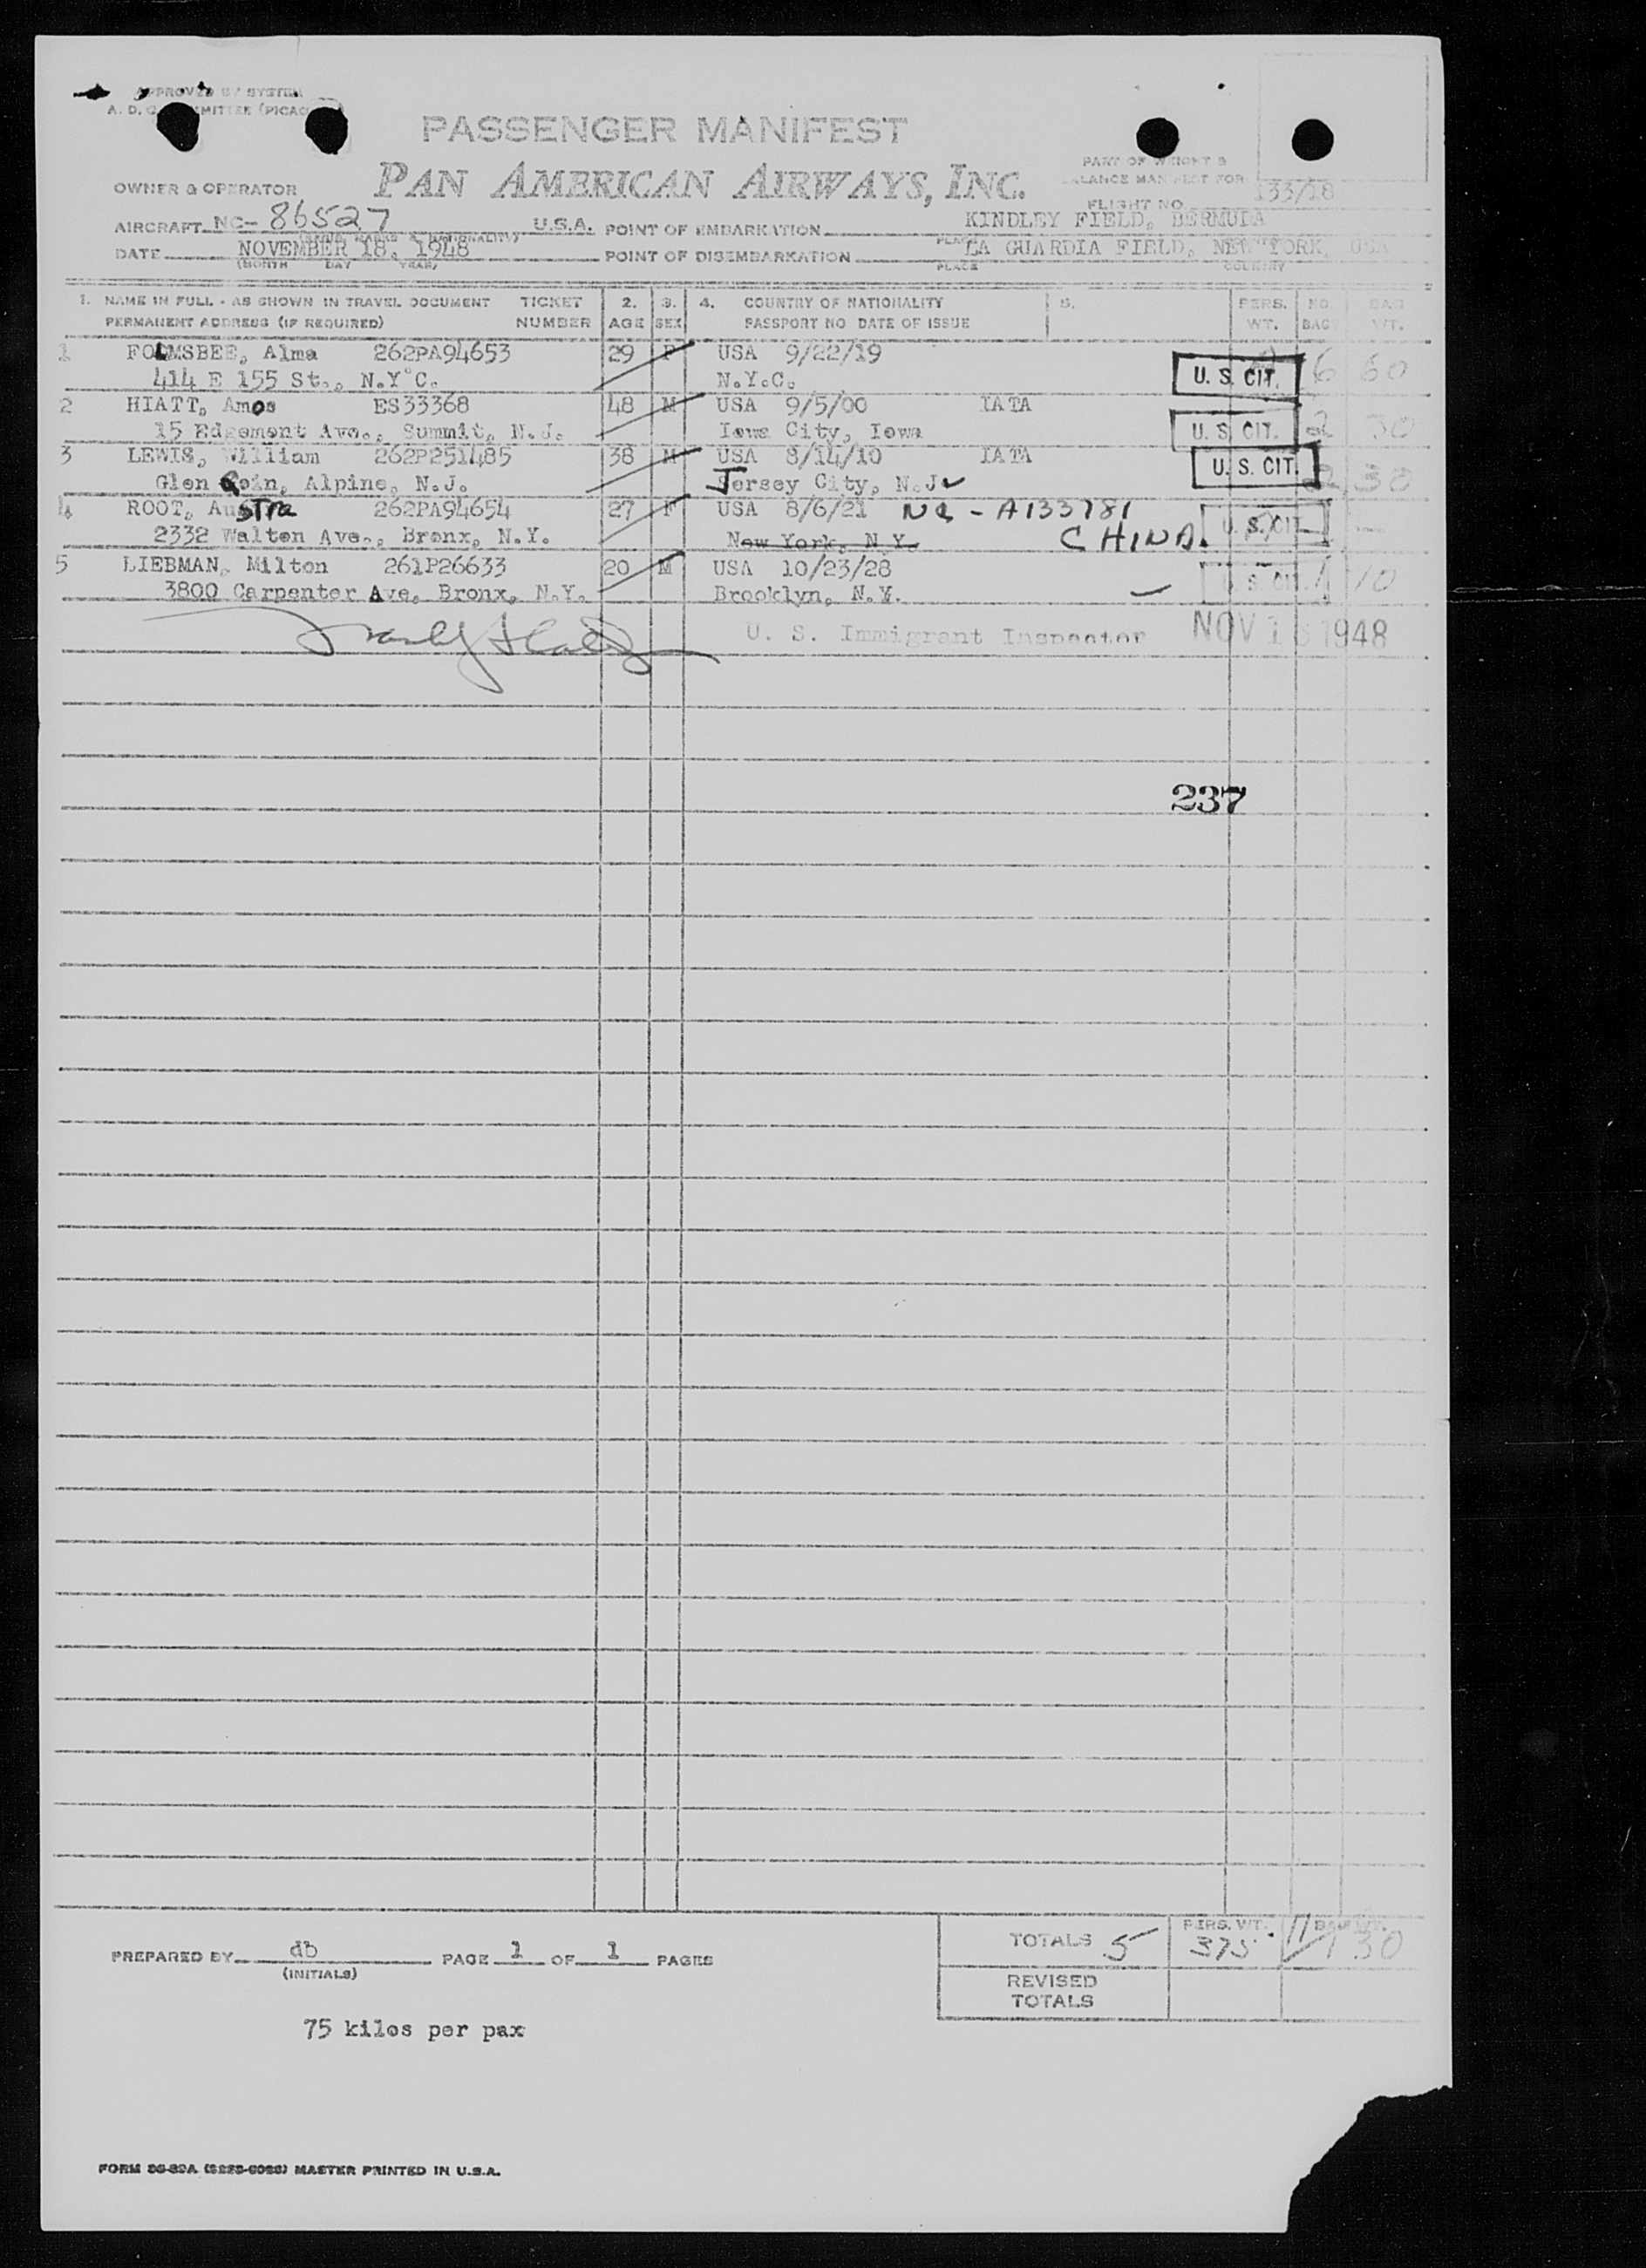 APPROVED BY SYSTEM
A. D. C. COMMITTEE (PICAO
PASSENGER MANIFEST
PAN AMERICAN AIRWAYS, INC.
PART OF WEIGHT &
BALANCE MANIFEST FOR
FLIGHT NO. 133/18
OWNER & OPERATOR
AIRCRAFT NC- 86527 U.S.A. POINT OF EMBARKATION KINDLEY FIELD, BERMUDA
DATE NOVEMBER 18, 1948 POINT OF DISEMBARKATION LA GUARDIA FIELD, NEW YORK, USA
(MONTH DAY YEAR) PLACE COUNTRY
1. NAME IN FULL - AS SHOWN IN TRAVEL DOCUMENT TICKET 2. 3. 4. COUNTRY OF NATIONALITY 5. PERS. NO. BAG
PERMANENT ADDRESS (IF REQUIRED) NUMBER AGE SEX PASSPORT NO DATE OF ISSUE WT. BAG WT.
1 FOLMSBEE, Alma 262PA94653 29 F USA 9/22/19
414 E 155 St., N.Y.C. N.Y.C. U. S. CIT. 6 60
2 HIATT, Amos ES33368 48 M USA 9/5/00 IATA
15 Edgemont Ave., Summit, N.J. Iowa City, Iowa U. S. CIT. 2 30
3 LEWIS, William 262P251485 38 M USA 8/14/10 IATA
Glen Goin, Alpine, N.J. Jersey City, N.J. U. S. CIT. 2 30
4 ROOT, Austra 262PA94654 27 F USA 8/6/21 NC - A133781
2332 Walton Ave., Bronx, N.Y. New York, N.Y. CHINA. U. S. CIT.
5 LIEBMAN, Milton 261P26633 20 M USA 10/23/28
3800 Carpenter Ave, Bronx, N.Y. Brooklyn, N.Y. U. S. CIT. 1 10
U. S. Immigrant Inspector NOV 18 1948
237
PREPARED BY db PAGE 1 OF 1 PAGES
(INITIALS)
TOTALS 5 PERS. WT. 375 11 BAG WT. 130
REVISED
TOTALS
75 kilos per pax
MASTER PRINTED IN U.S.A.